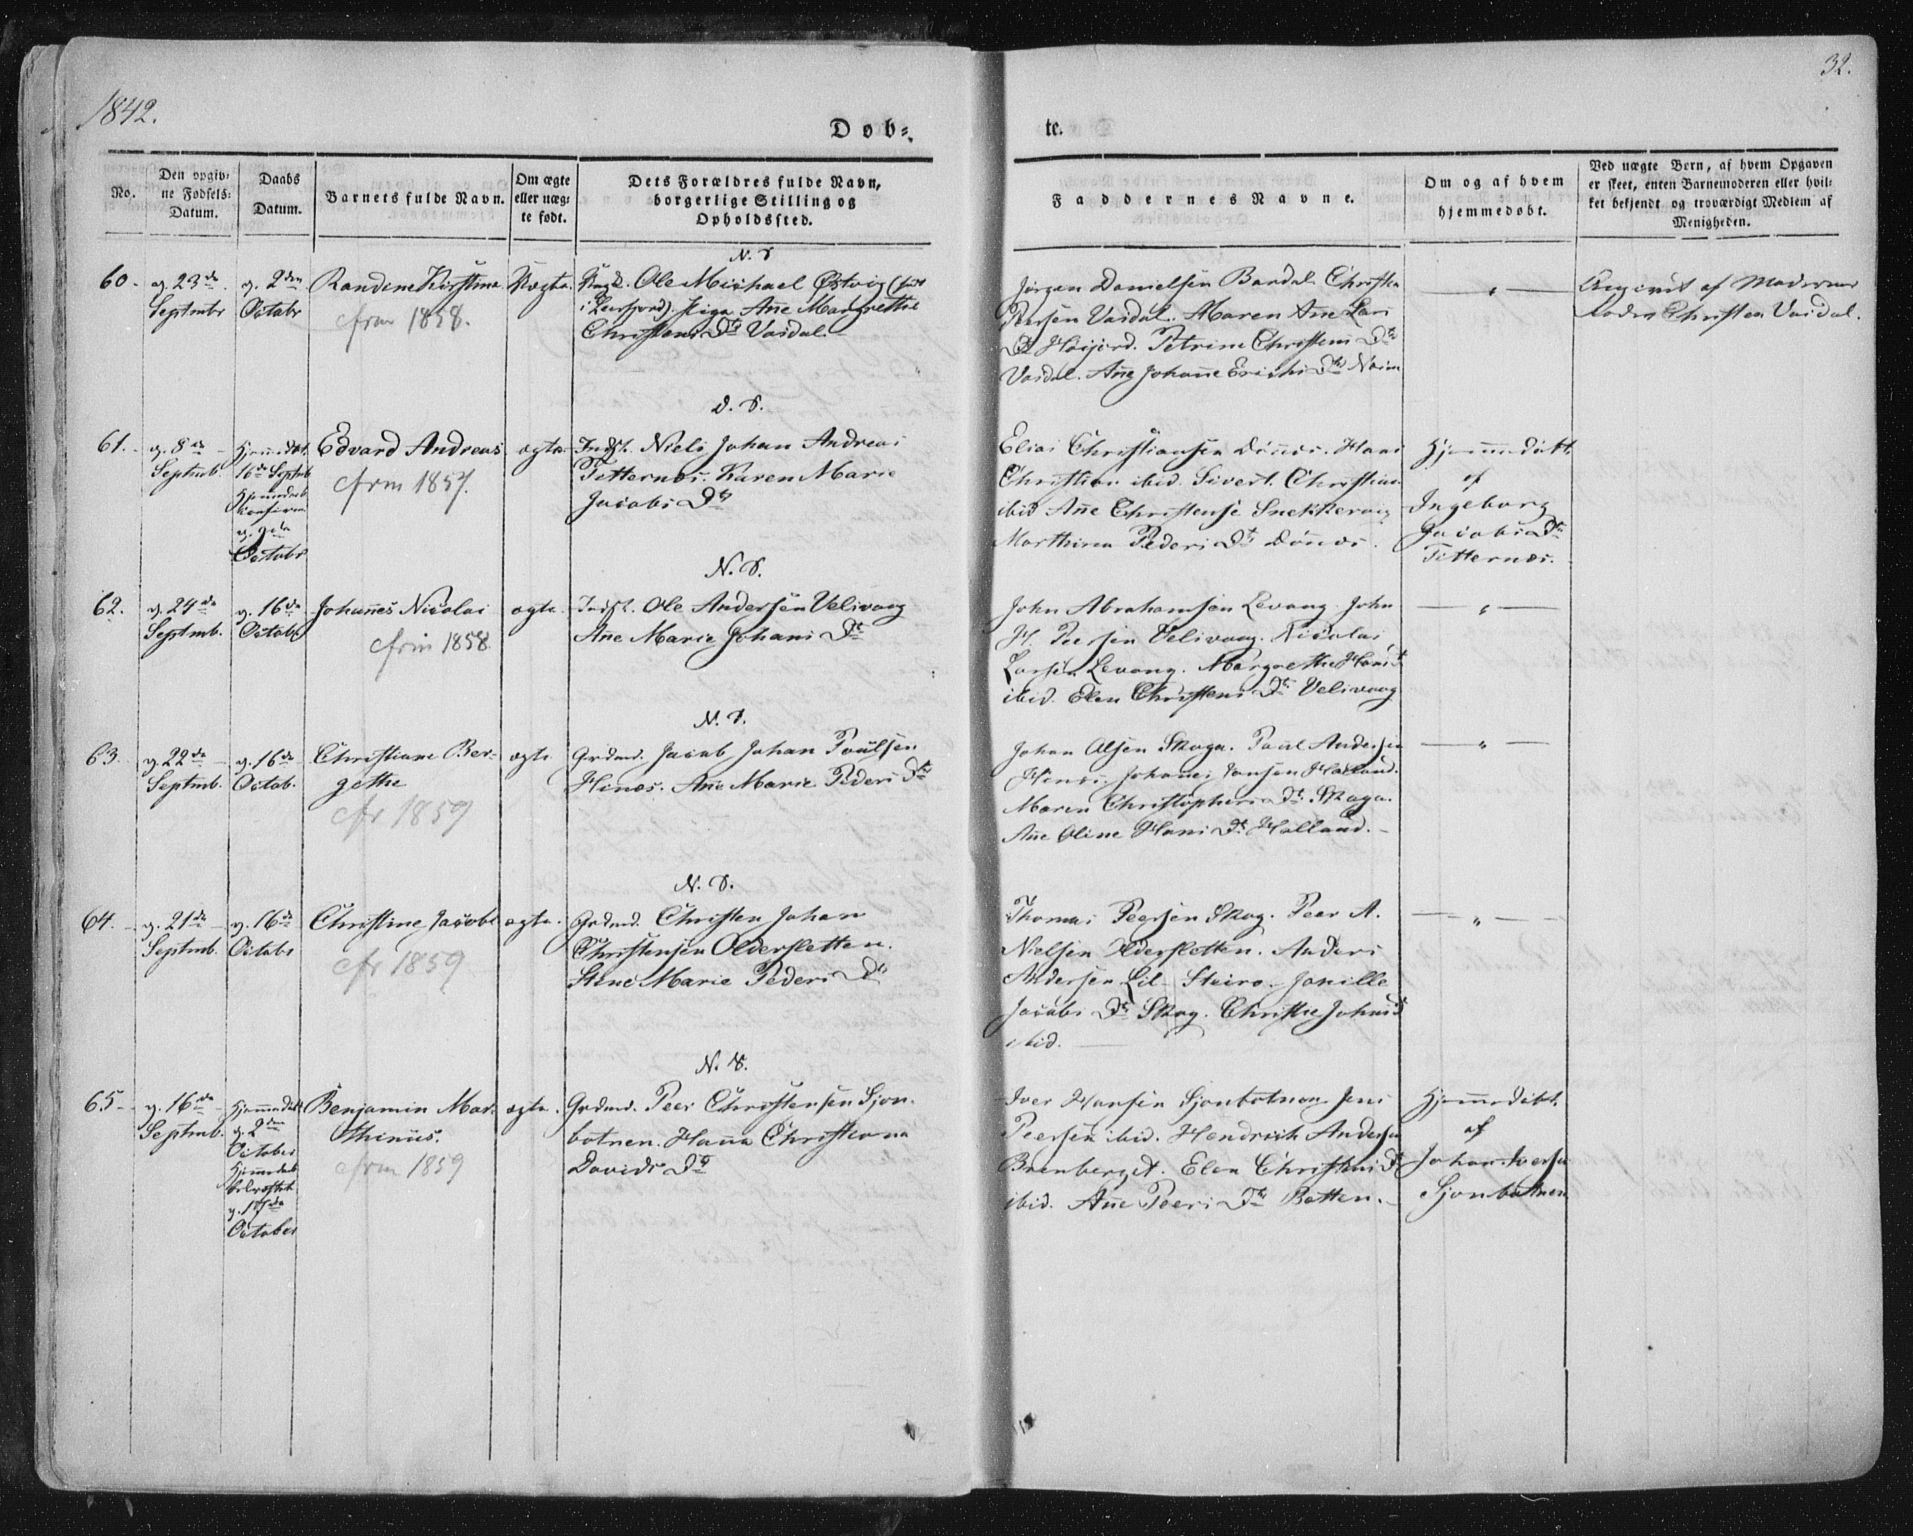 1842.
32.
Døb=
te.
No.
Den opgiv-
ne Fødsels-
Datum.
Daabs
Datum.
Barnets fulde Navn.
Om ægte
eller uæg-
te født.
Dets Forældres fulde Navn,
borgerlige Stilling og
Opholdssted.
Faddernes Navne.
Om og af hvem
hjemmedøbt.
Ved uægte Børn, af hvem Opgaven
er skeet, enten Barnemoderen eller hvil-
ket bekjendt og troværdigt Medlem af
Menigheden.
60.
23de
Septmbr
2den
Octobr
Randine Kirstina
cfrm 1858.
Uægte.
Ole Michael Østvig
Pige Ane Margrethe
Christens Dtr Vasdal
Jørgen Danielsen Bardal Christen
Peersen Vasdal. Maren Ane Lars
Petrine Christens Dtr
Vasdal. Ane Johane Erichs Dtr
Angivet af Moderens
Fader Christen Vasdal.
61.
8de
Septmb.
Hjemmedøbt
16de Septmb
Octobr
Edvard Andreas
cfrm 1857.
ægte
Indst. Niels Johan Andreas
Titternæs. Karen Marie
Jacobs Dtr
Elias Christiansen Dønnæs. Hans
Christian ibid. Sivert Christian
ibid Ane Christense
Marthina Peders Dtr Dønnæs.
Hjemmedøbt.
af
Ingeborg
Jacobs Dtr
Titternæs.
N. S.
62.
24de
Septmb.
16de
Octobr
Johanes Nicolai
cfrm 1858.
ægte.
Indst. Ole Andersen Velivaag
Ane Marie Johans Dtr
John Abrahamsen Levang. John
H. Peersen Velivaag. Nicolai
Larsen Levang. Margrethe Hans d
ibid. Elen Christens Dtr Velivaag
N. S.
63.
22de
Septmb.
16de
Octob.
Christiane Ber-
gethe
cfr 1859
ægte
Grdmd. Jacob Johan Poulsen
Hinæs. Ane Marie Peders Dtr
Johan Olsen Skoga. Poul Andersen
Hinæs. Johanes Hansen Halland.
Maren Christophers Dtr Skaga.
Ane Oline Hans Dtr Halland.
N. S.
64.
21de
Septmb.
16de
Octobr
Christine Jacobe
cfr 1859
ægte.
Grdmd. Christen Johan
Christensen Oldersletten.
Stine Marie Peders Dtr
Thomas Peersen Skog. Peer A.
Nielsen Oldersletten. Anders
Andersen Lil-Steiro. Jonille
Jacobs Dtr Skog. Christine Johns d
ibid.
N. S.
65
16de
Septmb.
Hjemmedøbt
2den
October
17de
October
Benjamin Mar-
thinus.
cfrm 1859
ægte.
Grdmd. Peer Christensen Sjon-
botnen. Hana Christiana
Davids Dtr
Iver Hansen Sjonbotnen Jens
Peersen ibid. Hendrich Andersen
Brenberget. Elen Christens d
ibid. Ane Peers Dtr Botten.
Hjemmedøbt.
af
Johan Iversen
Sjonbotnen